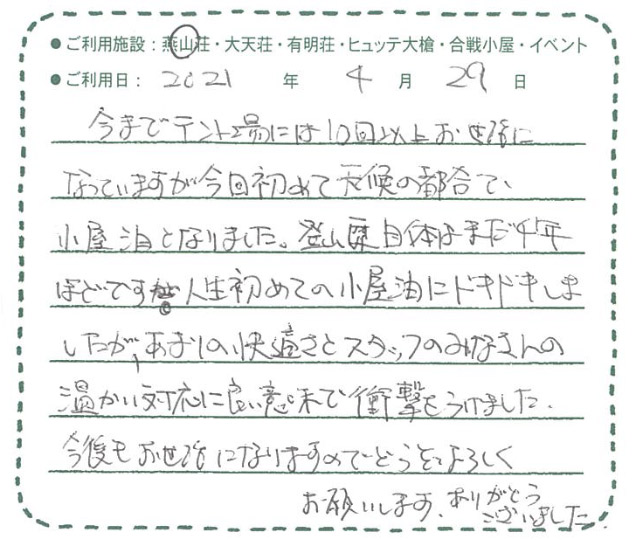 ● ご利用施設：燕山荘・大天荘・有明荘・ヒュッテ大槍・合戦小屋・イベント
● ご利用日： 2021 年 4 月 29 日
今までテント場には10回以上お世話に
なっていますが今回初めて天候の都合で、
小屋泊となりました。登山歴自体はまだ4年
ほどですが人生初めての小屋泊にドキドキしま
したが、あまりの快適さとスタッフのみなさんの
温かい対応に良い意味で衝撃をうけました。
今後もお世話になりますのでどうぞよろしく
お願いします。ありがとう
ございました